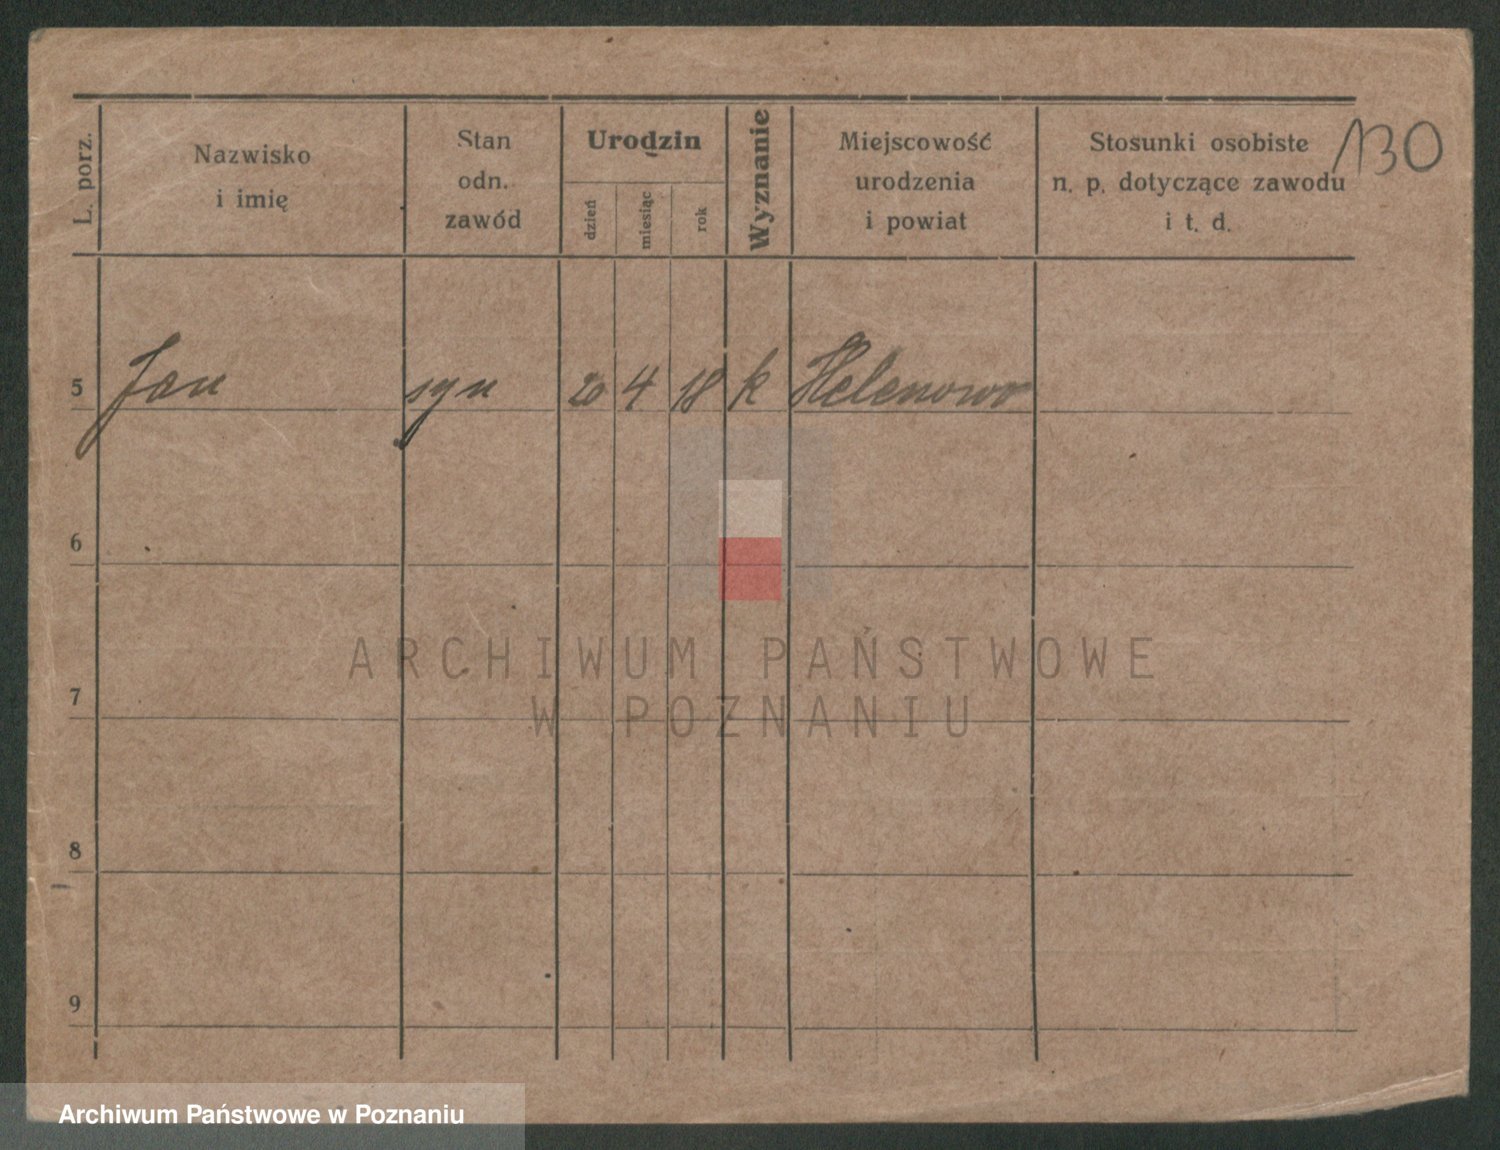 130
L. porz.
Nazwisko
i imię
Stan
odn.
zawód
Urodzin
dzień
miesiąc
rok
Wyznanie
Miejscowość
urodzenia
i powiat
Stosunki osobiste
n. p. dotyczące zawodu
i t. d.
5 Jan syn 20 4 18 k Helenowo
6
7
8
9
ARCHIWUM PAŃSTWOWE
W POZNANIU
Archiwum Państwowe w Poznaniu